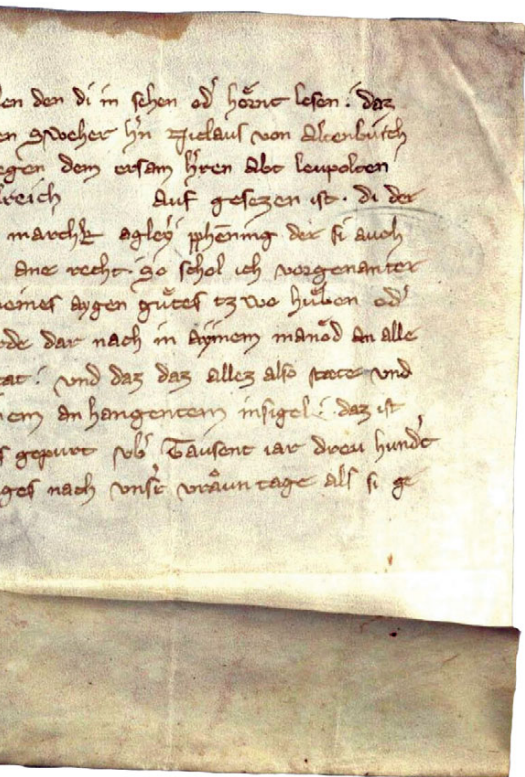 en den di in sehen od' hoͤrnt lesen : daz
en Sweher h'n Niclaus von Altenburch
egen dem ersam h'ren Abt leupolten
reich auf gesezen ist · di der
marchk agleyͤ phēning der si auch
ane recht · So schol ich vorgenanter
eines aygen guͤtes tzwo huͤben od'
de dar nach in ayͤnem manod an alle
tat : vnd daz daz allez also staete vnd
em an hangentem insigel : daz ist
s gepurt vb' Tausent iar dreu hund't
ges nach vns'r vraͦun tage als si ge